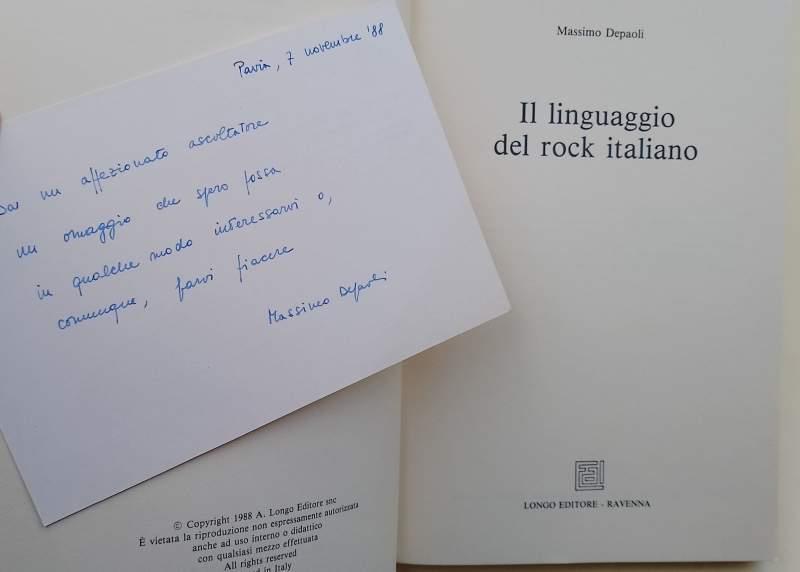 Pavia, 7 novembre '88
Da un affezionato ascoltatore
un omaggio che spero possa
in qualche modo interessarvi o,
comunque, farvi piacere
Massimo Depaoli
© Copyright 1988 A. Longo Editore snc
È vietata la riproduzione non espressamente autorizzata
anche ad uso interno o didattico
con qualsiasi mezzo effettuata
All rights reserved
in Italy
Massimo Depaoli
Il linguaggio
del rock italiano
LONGO EDITORE - RAVENNA